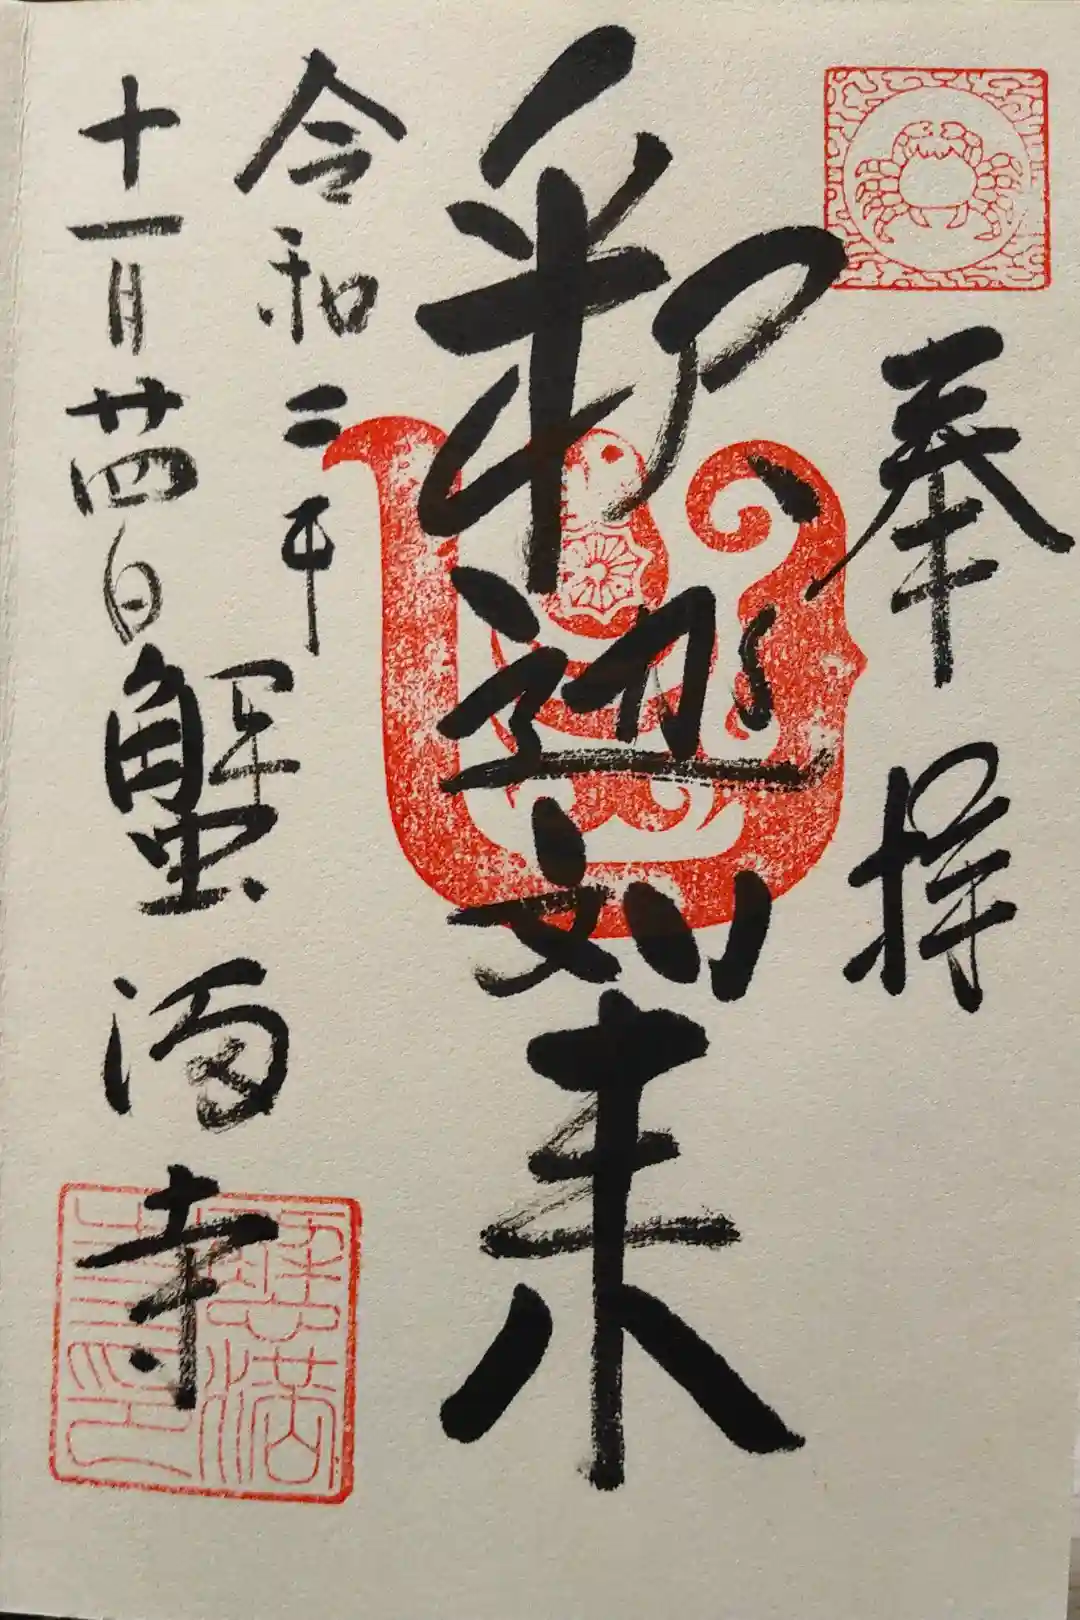 奉拝
釈迦如来
令和二年
十一月廿四日
蟹満寺
蟹満寺印